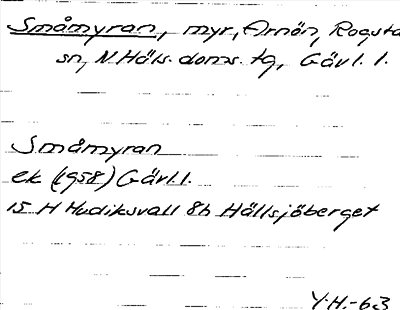 Småmyran, myr, Arnön, Rogsta
sn, N. Häls. doms. tg, Gävl. l.
Småmyran
ek (1958) Gävl. l.
15 H Hudiksvall 8h Hällsjöberget
Y.H.-63